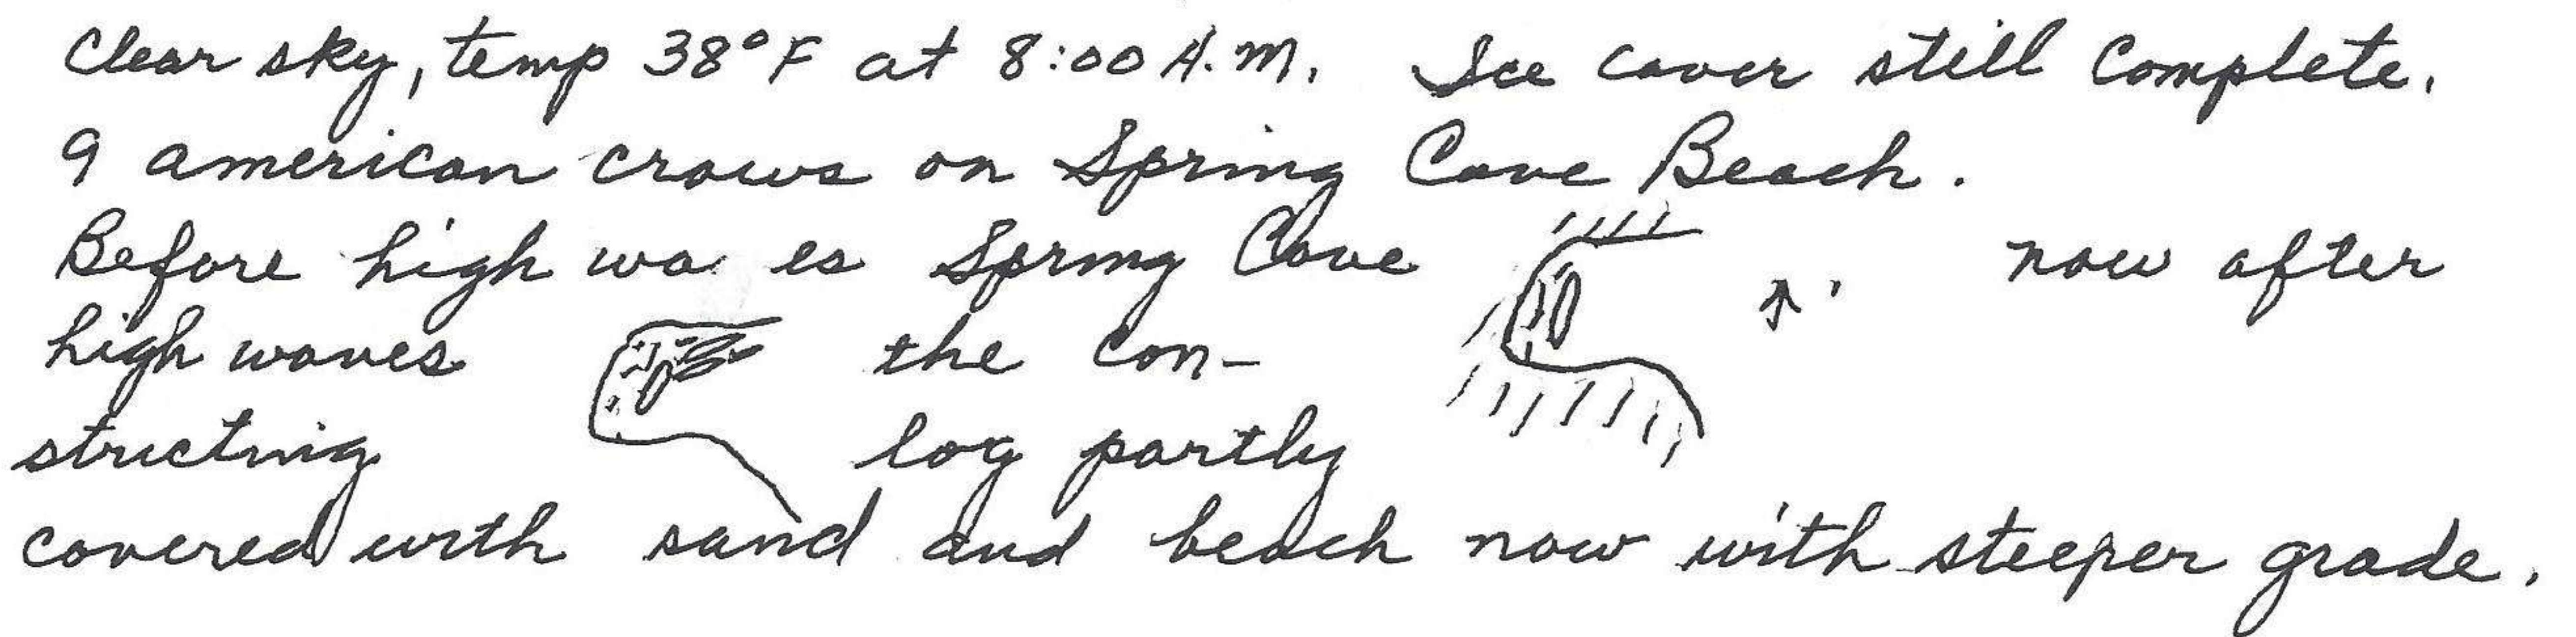 Clear sky, temp 38°F at 8:00 A.M. Ice cover still complete.
9 american crows on Spring Cove Beach.
Before high wa es Spring Cove now after
high waves the con-
stricting log partly
covered with sand and beach now with steeper grade.